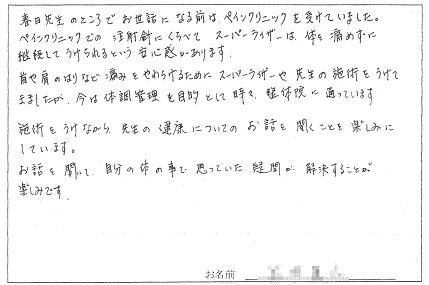 春日先生のところでお世話になる前は、ペインクリニックを受けていました。
ペインクリニックでの注射針にくらべてスーパーライザーは、体を痛めずに
継続してうけられるという安心感があります。
首や肩のはりなど痛みをやわらげるためにスーパーライザーや先生の施術をうけて
きましたが、今は体調管理を目的として時々、整体院に通っています
施術をうけながら先生の健康についてのお話を聞くことを楽しみに
しています。
お話を聞いて、自分の体の事で思っていた疑問が解決することが
楽しみです。
お名前